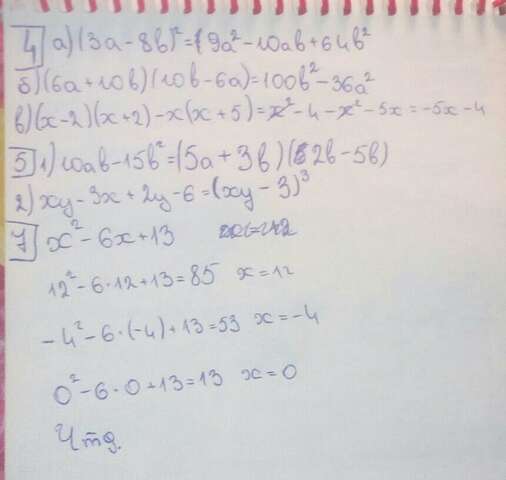 4 а) (3a-8b)²=(9a²-10ab+64b²
б) (6a+10b)(10b-6a)=100b²-36a²
в) (x-2)(x+2)-x(x+5)=x²-4-x²-5x=-5x-4
5 1) 10ab-15b²=(5a+3b)(2b-5b)
2) xy-3x+2y-6=(xy-3)³
7 x²-6x+13
12²-6·12+13=85 x=12
-4²-6·(-4)+13=53 x=-4
0²-6·0+13=13 x=0
Чтд.